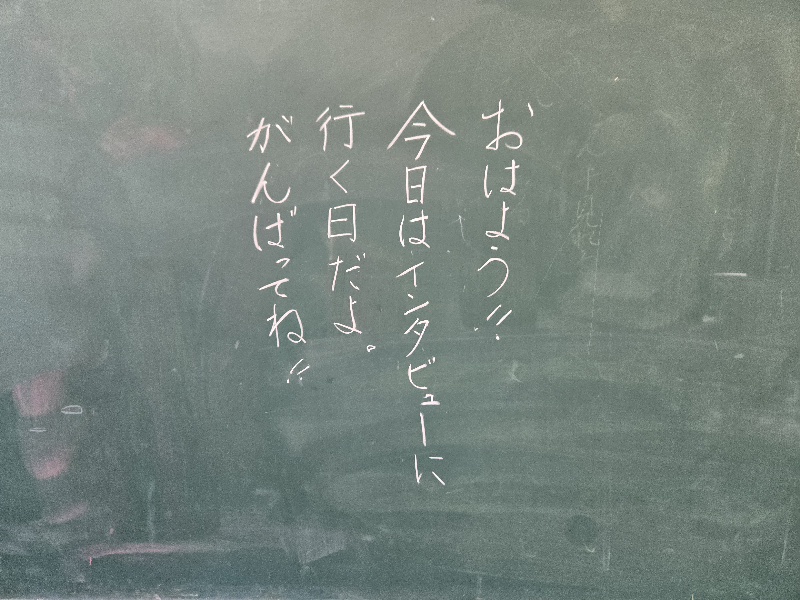 おはよう!!
今日はインタビューに
行く日だよ。
がんばってね!!